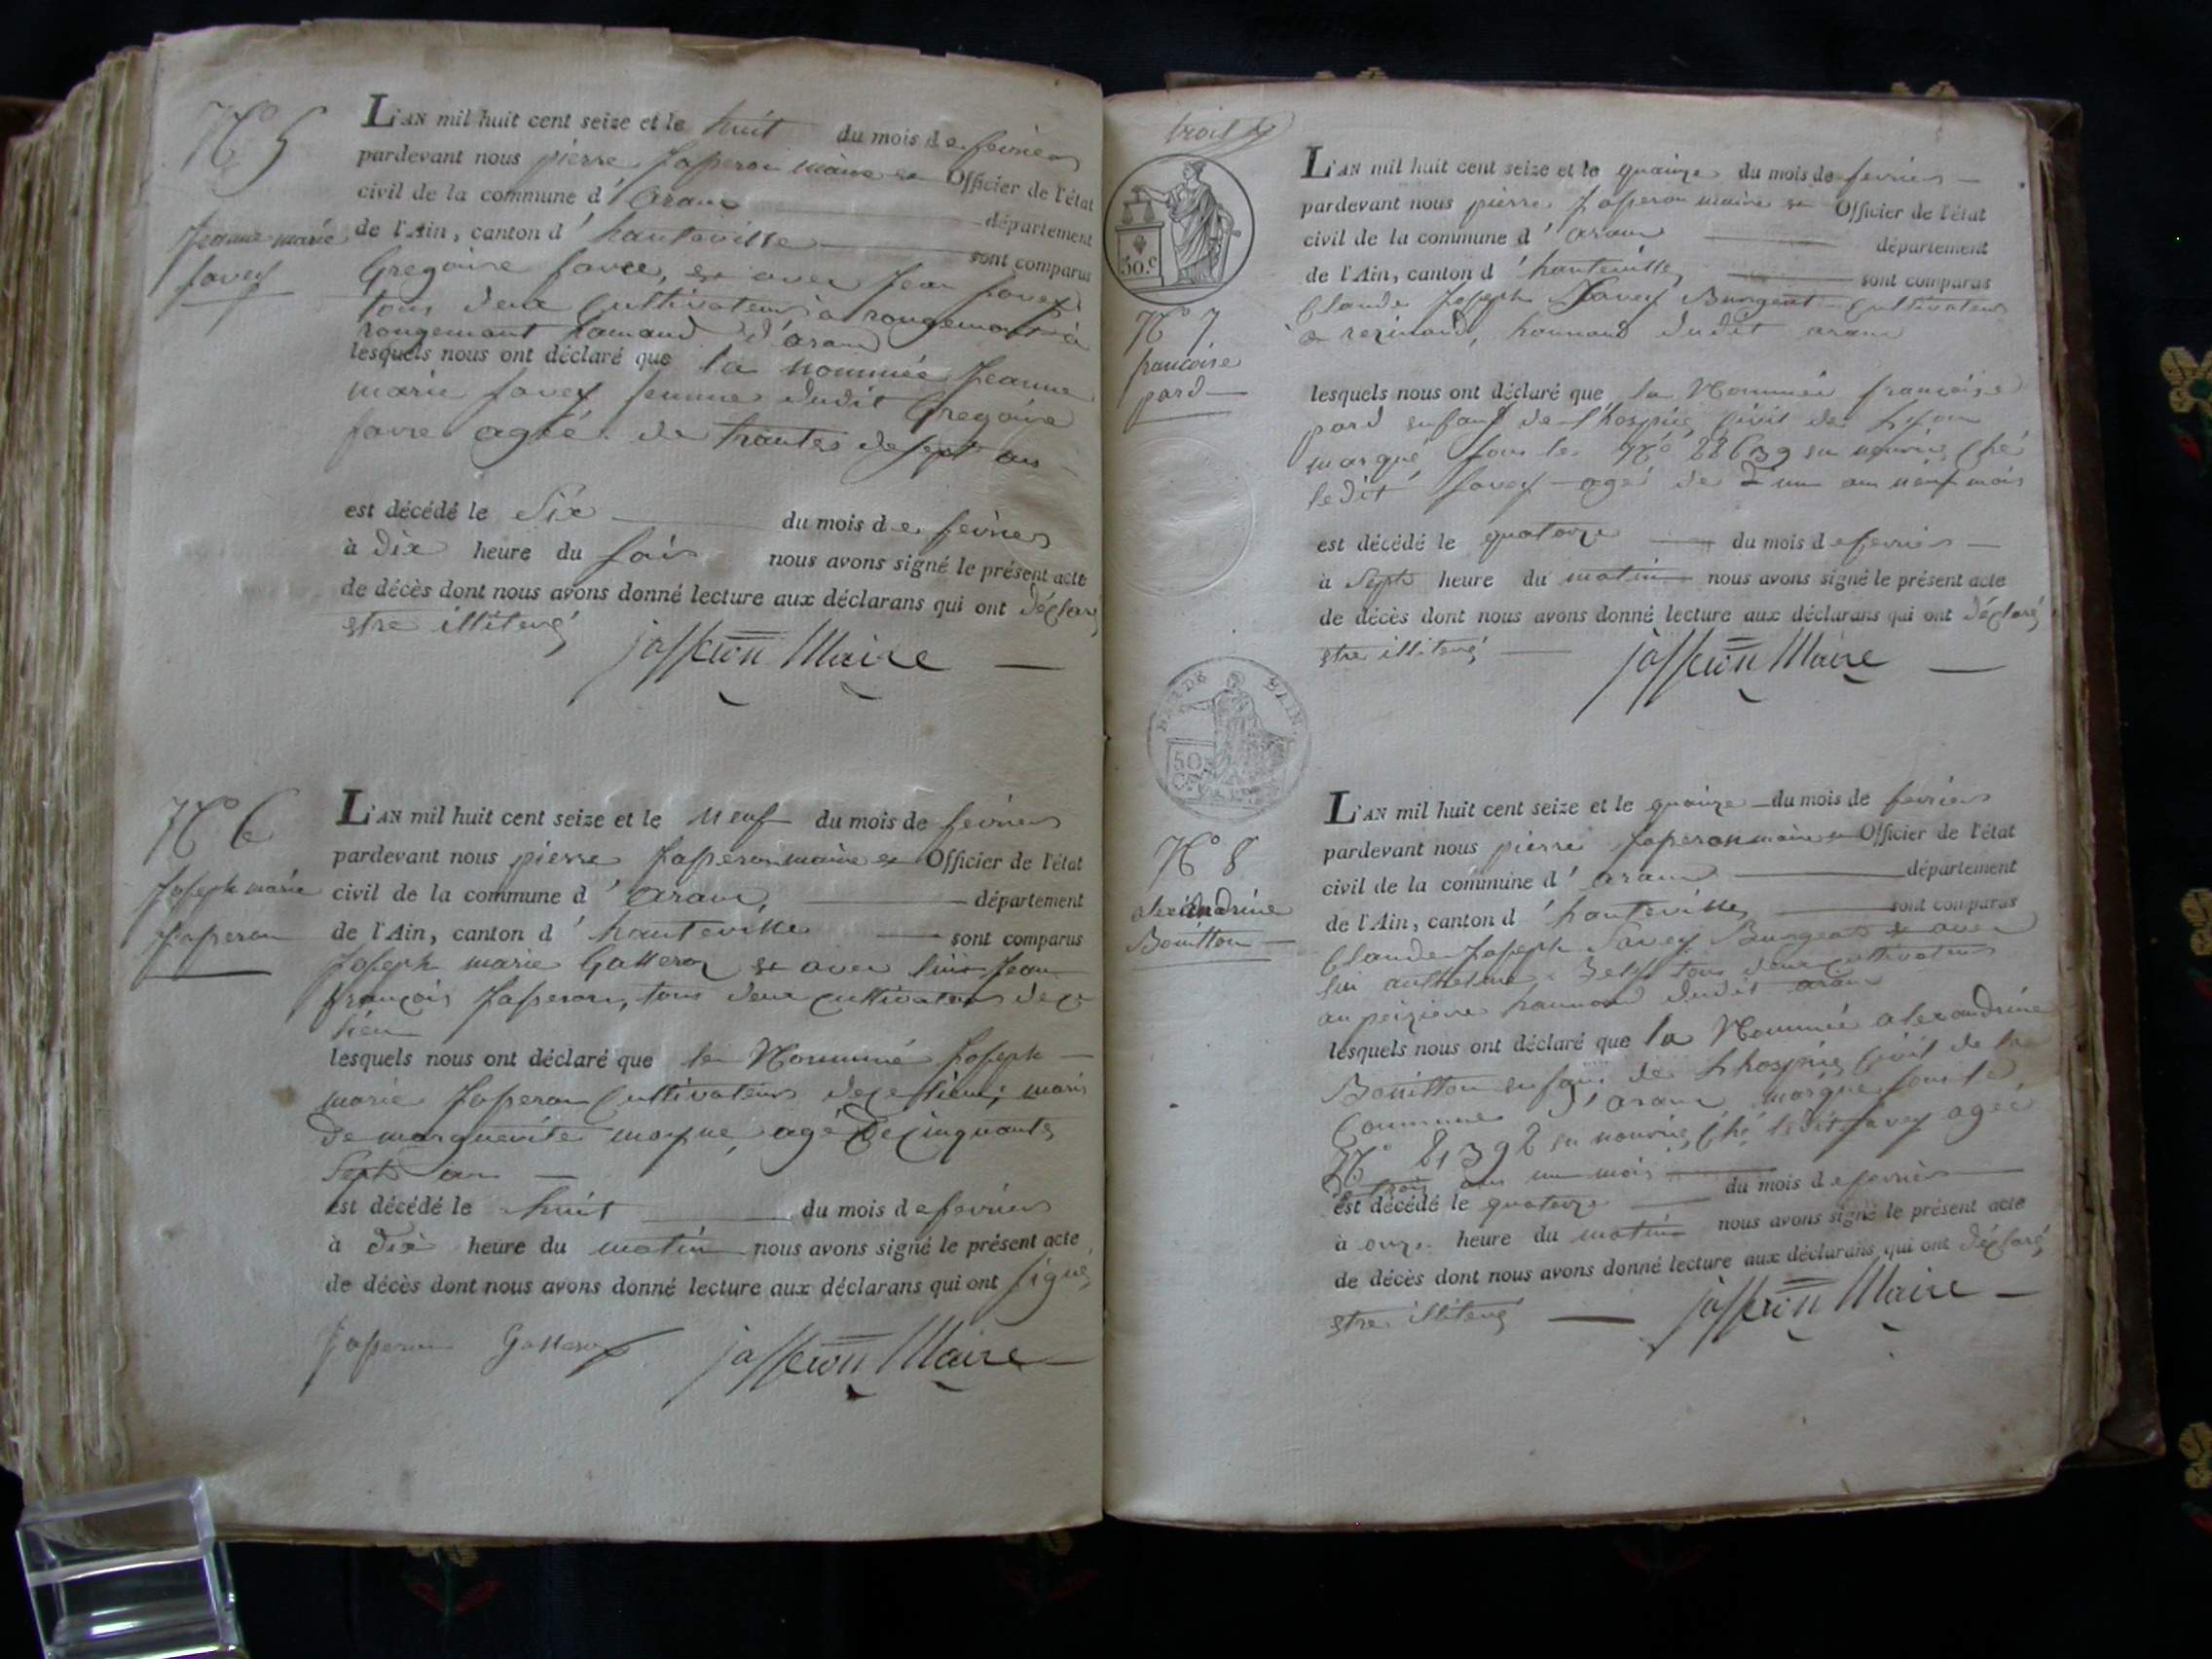 N° 5
Jeanne marie
favey
L'AN mil huit cent seize et le huit du mois de fevrier
pardevant nous pierre Josseron maire et Officier de l'état
civil de la commune d'aranc département
de l'Ain, canton d'hauteville sont comparus
Gregoire favre, et avec Jean favey
tous deux cultivateurs à rougemont
rougemont hamaud d'aranc
lesquels nous ont déclaré que la nommée Jeanne
marie favey femme dudit Gregoire
favre agée de trantes desept ans
est décédé le Six du mois de fevrier
à dix heure du soir nous avons signé le présent acte
de décès dont nous avons donné lecture aux déclarans qui ont déclaré
estre illiteré
josseron Maire
N° 6
Joseph marie
Josseron
L'AN mil huit cent seize et le neuf du mois de fevrier
pardevant nous pierre Josseron maire et Officier de l'état
civil de la commune d'aranc, département
de l'Ain, canton d'hauteville sont comparus
Joseph marie et avec Jean
françois Josseron, tous deux cultivateurs dece
lieu
lesquels nous ont déclaré que le Nommé Joseph
marie Josseron Cultivateurs dece lieu, maris
de marguerite moyne, agé de cinquante
Sept an
est décédé le huit du mois de fevrier
à dix heure du matin nous avons signé le présent acte
de décès dont nous avons donné lecture aux déclarans qui ont signé
Josseron josseron Maire
50.c
N° 7
francoise
pard
L'AN mil huit cent seize et le quainze du mois de fevrier
pardevant nous pierre Josseron maire et Officier de l'état
civil de la commune d'aranc département
de l'Ain, canton d'hauteville, sont comparus
Claude Joseph Savey Burgeat Cultivateur
à hamaud dudit aranc
lesquels nous ont déclaré que la Nommée francoise
pard enfant de l'hospice Civil de Lyon
marqué sous le N° en nourrice ché
ledit Savey agé de un an neuf mois
est décédé le quatorze du mois de fevrier
à Sept heure du matin nous avons signé le présent acte
de décès dont nous avons donné lecture aux déclarans qui ont déclaré
estre illiteré josseron Maire
50
N° 8
alexandrine
Bouitton
L'AN mil huit cent seize et le quainze du mois de fevrier
pardevant nous pierre Josseron maire et Officier de l'état
civil de la commune d'aranc département
de l'Ain, canton d'hauteville, sont comparus
Claude Joseph Savey Burgeat et avec
lui tous deux cultivateurs
hamaud dudit aranc
lesquels nous ont déclaré que la Nommée alexandrine
Bouitton enfant de l'hospice Civil de la
Commune d'aranc marqué sous le
N° en nourrice ché ledit Savey agée
de trois ans un mois
est décédé le quatorze du mois de fevrier
à onze heure du matin nous avons signé le présent acte
de décès dont nous avons donné lecture aux déclarans qui ont déclaré
estre illiteré josseron Maire